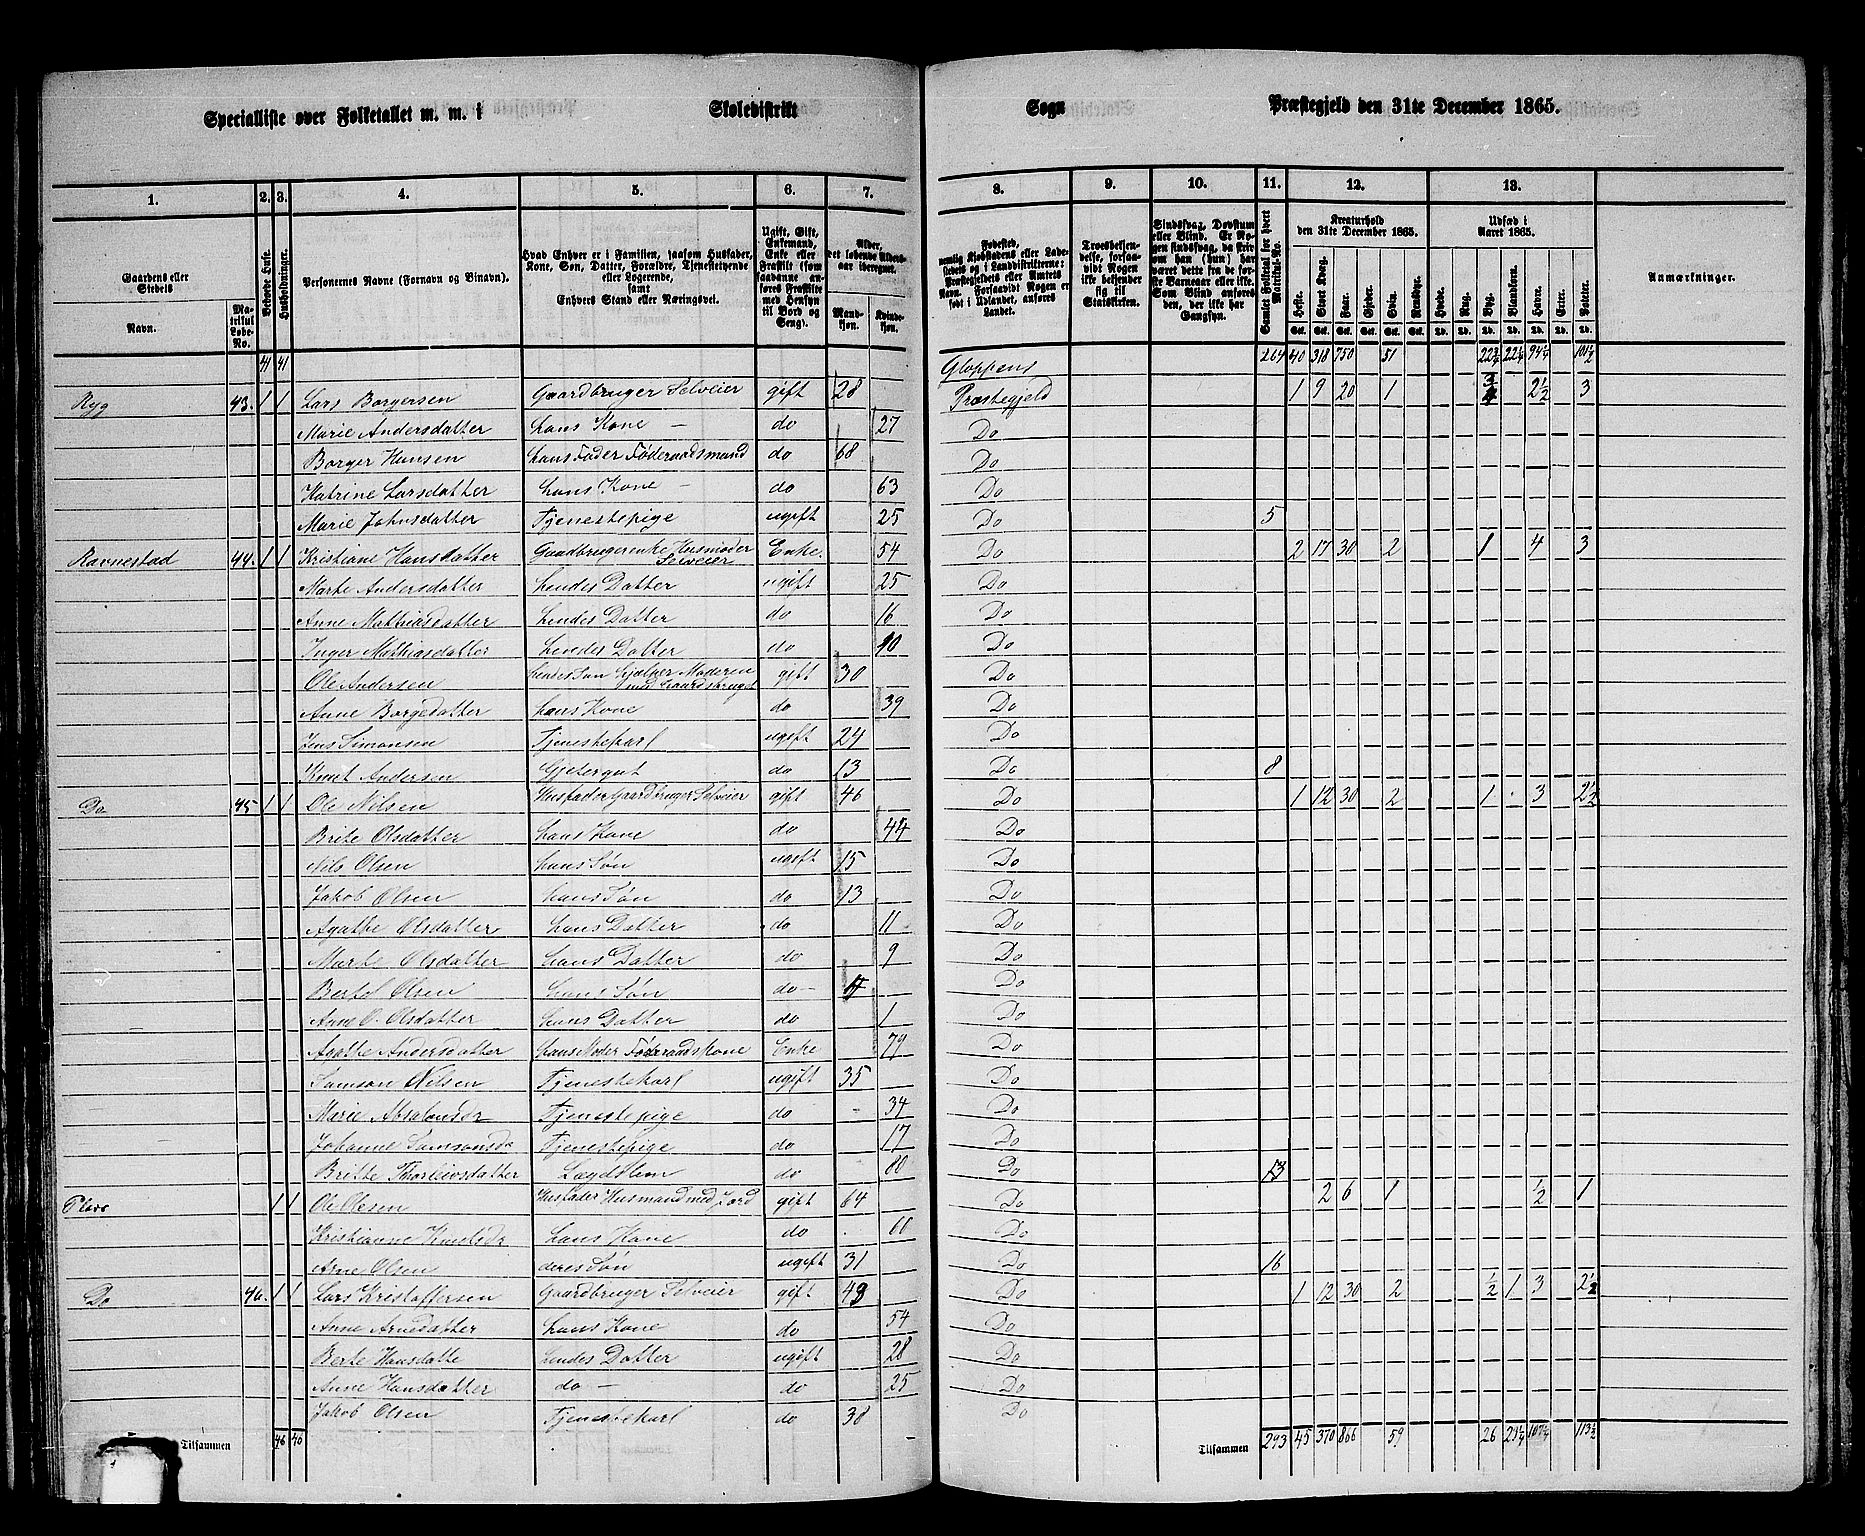 Specialliste over Folketallet m. m. i Skoledistrikt Sogn Præstegjeld den 31te December 1865.
1. 2. 3. 4. 5. 6. 7. 8. 9. 10. 11. 12. 13.
Gaardens eller Stedets Navn. Matrikul Løbe-No. Beboede Huse. Husholdninger. Personernes Navne (Fornavn og Binavn). Hvad Enhver er i Familien, saasom Husfader, Kone, Søn, Datter, Forældre, Tjenestetyende eller Logerende, samt Enhvers Stand eller Næringsvei. Ugift, Gift, Enkemand, Enke eller Fraskilt (som saadanne anføres Fraskilte med Hensyn til Bord og Seng). Alder, det løbende Aldersaar iberegnet. Mandkjøn. Kvindekjøn.
Fødested, nemlig Kjøbstadens eller Ladestedets og i Landdistrikterne: Præstegjeldets eller Amtets Navn. Forsaavidt Nogen er født i Udlandet, anføres Landet. Troesbekjendelse, forsaavidt Nogen ikke bekjender sig til Statskirken. Sindssvag, Døvstum eller Blind. Er Nogen sindssvag, da hvorvidt han (hun) har været dette fra de første Barneaar eller ikke. Som Blind anføres den, der ikke har Gangsyn. Samlet Folketal for hvert Matrikul-No. Kreaturhold den 31te December 1865. Heste. Stort Kvæg. Faar. Geder. Svin. Rensdyr. Udsæd i Aaret 1865. Hvede. Rug. Byg. Blandkorn. Havre. Erter. Poteter. Anmærkninger.
41 41 Gloppens 264 40 318 750 51 22¾ 22¼ 94¼ 101½
Ryg 43. 1 1 Lars Borgersen Gaardbruger Selveier gift 28 Præstegjeld 1 9 20 1 ¾ 2½ 3
Marie Andersdatter hans Kone do 27 Do
Borger Hansen hans Fader Føderaadsmand do 68 Do
Katrine Larsdatter hans Kone do 63 Do
Marie Johnsdatter Tjenestepige ugift 25 Do 5
Ravnestad 44. 1 1 Kristiane Hansdatter Gaardbrugerenke Husmoder Selveier Enke 54 Do 2 17 30 2 1 4 3
Marte Andersdatter hendes Datter ugift 25 Do
Anne Mathiasdatter hendes Datter do 16 Do
Inger Mathiasdatter hendes Datter do 10 Do
Ole Andersen hendes Søn hjælper Moderen med Gaardsbruget gift 30 Do
Anne Borgedatter hans Kone do 39 Do
Jens Simonsen Tjenestekarl ugift 24 Do
Knut Andersen Gjetergut do 13 Do 8
Do 45 1 1 Ole Nilsen Husfader Gaardbruger Selveier gift 46 Do 1 12 30 2 1 3 2½
Brite Olsdatter hans Kone do 44 Do
Nils Olsen hans Søn ugift 15 Do
Jakob Olsen hans Søn do 13 Do
Agathe Olsdatter hans Datter do 11 Do
Marte Olsdatter hans Datter do 9 Do
Bertel Olsen hans Søn do Do
Anne O. Olsdatter hans Datter do 1 Do
Agathe Andersdatter hans Moder Føderaadskone Enke 79 Do
Samson Nilsen Tjenestekarl ugift 35 Do
Marie Absalonsdr Tjenestepige do 34 Do
Johanne Samsonsdr Tjenestepige do 17 Do
Britte Thorleivsdatter Lægdslem do 80 Do 13
Plads 1 1 Ole Olesen Husfader Husmand med Jord gift 64 Do 2 6 1 ½ 1
Kristianne Knutsdr hans Kone do 60 Do
Arne Olsen deres Søn ugift 31 Do 16
Do 46. 1 1 Lars Kristoffersen Gaardbruger Selveier gift 49 Do 1 12 30 2 ½ 1 3 2½
Anne Arnedatter hans Kone do 54 Do
Berte Hansdatte hendes Datter ugift 28 Do
Anne Hansdatter do do 25 Do
Jakob Olsen Tjenestekarl do 38 Do
Tilsammen 46 46 Tilsammen 293 45 370 866 59 26 23¼ 107¼ 113½